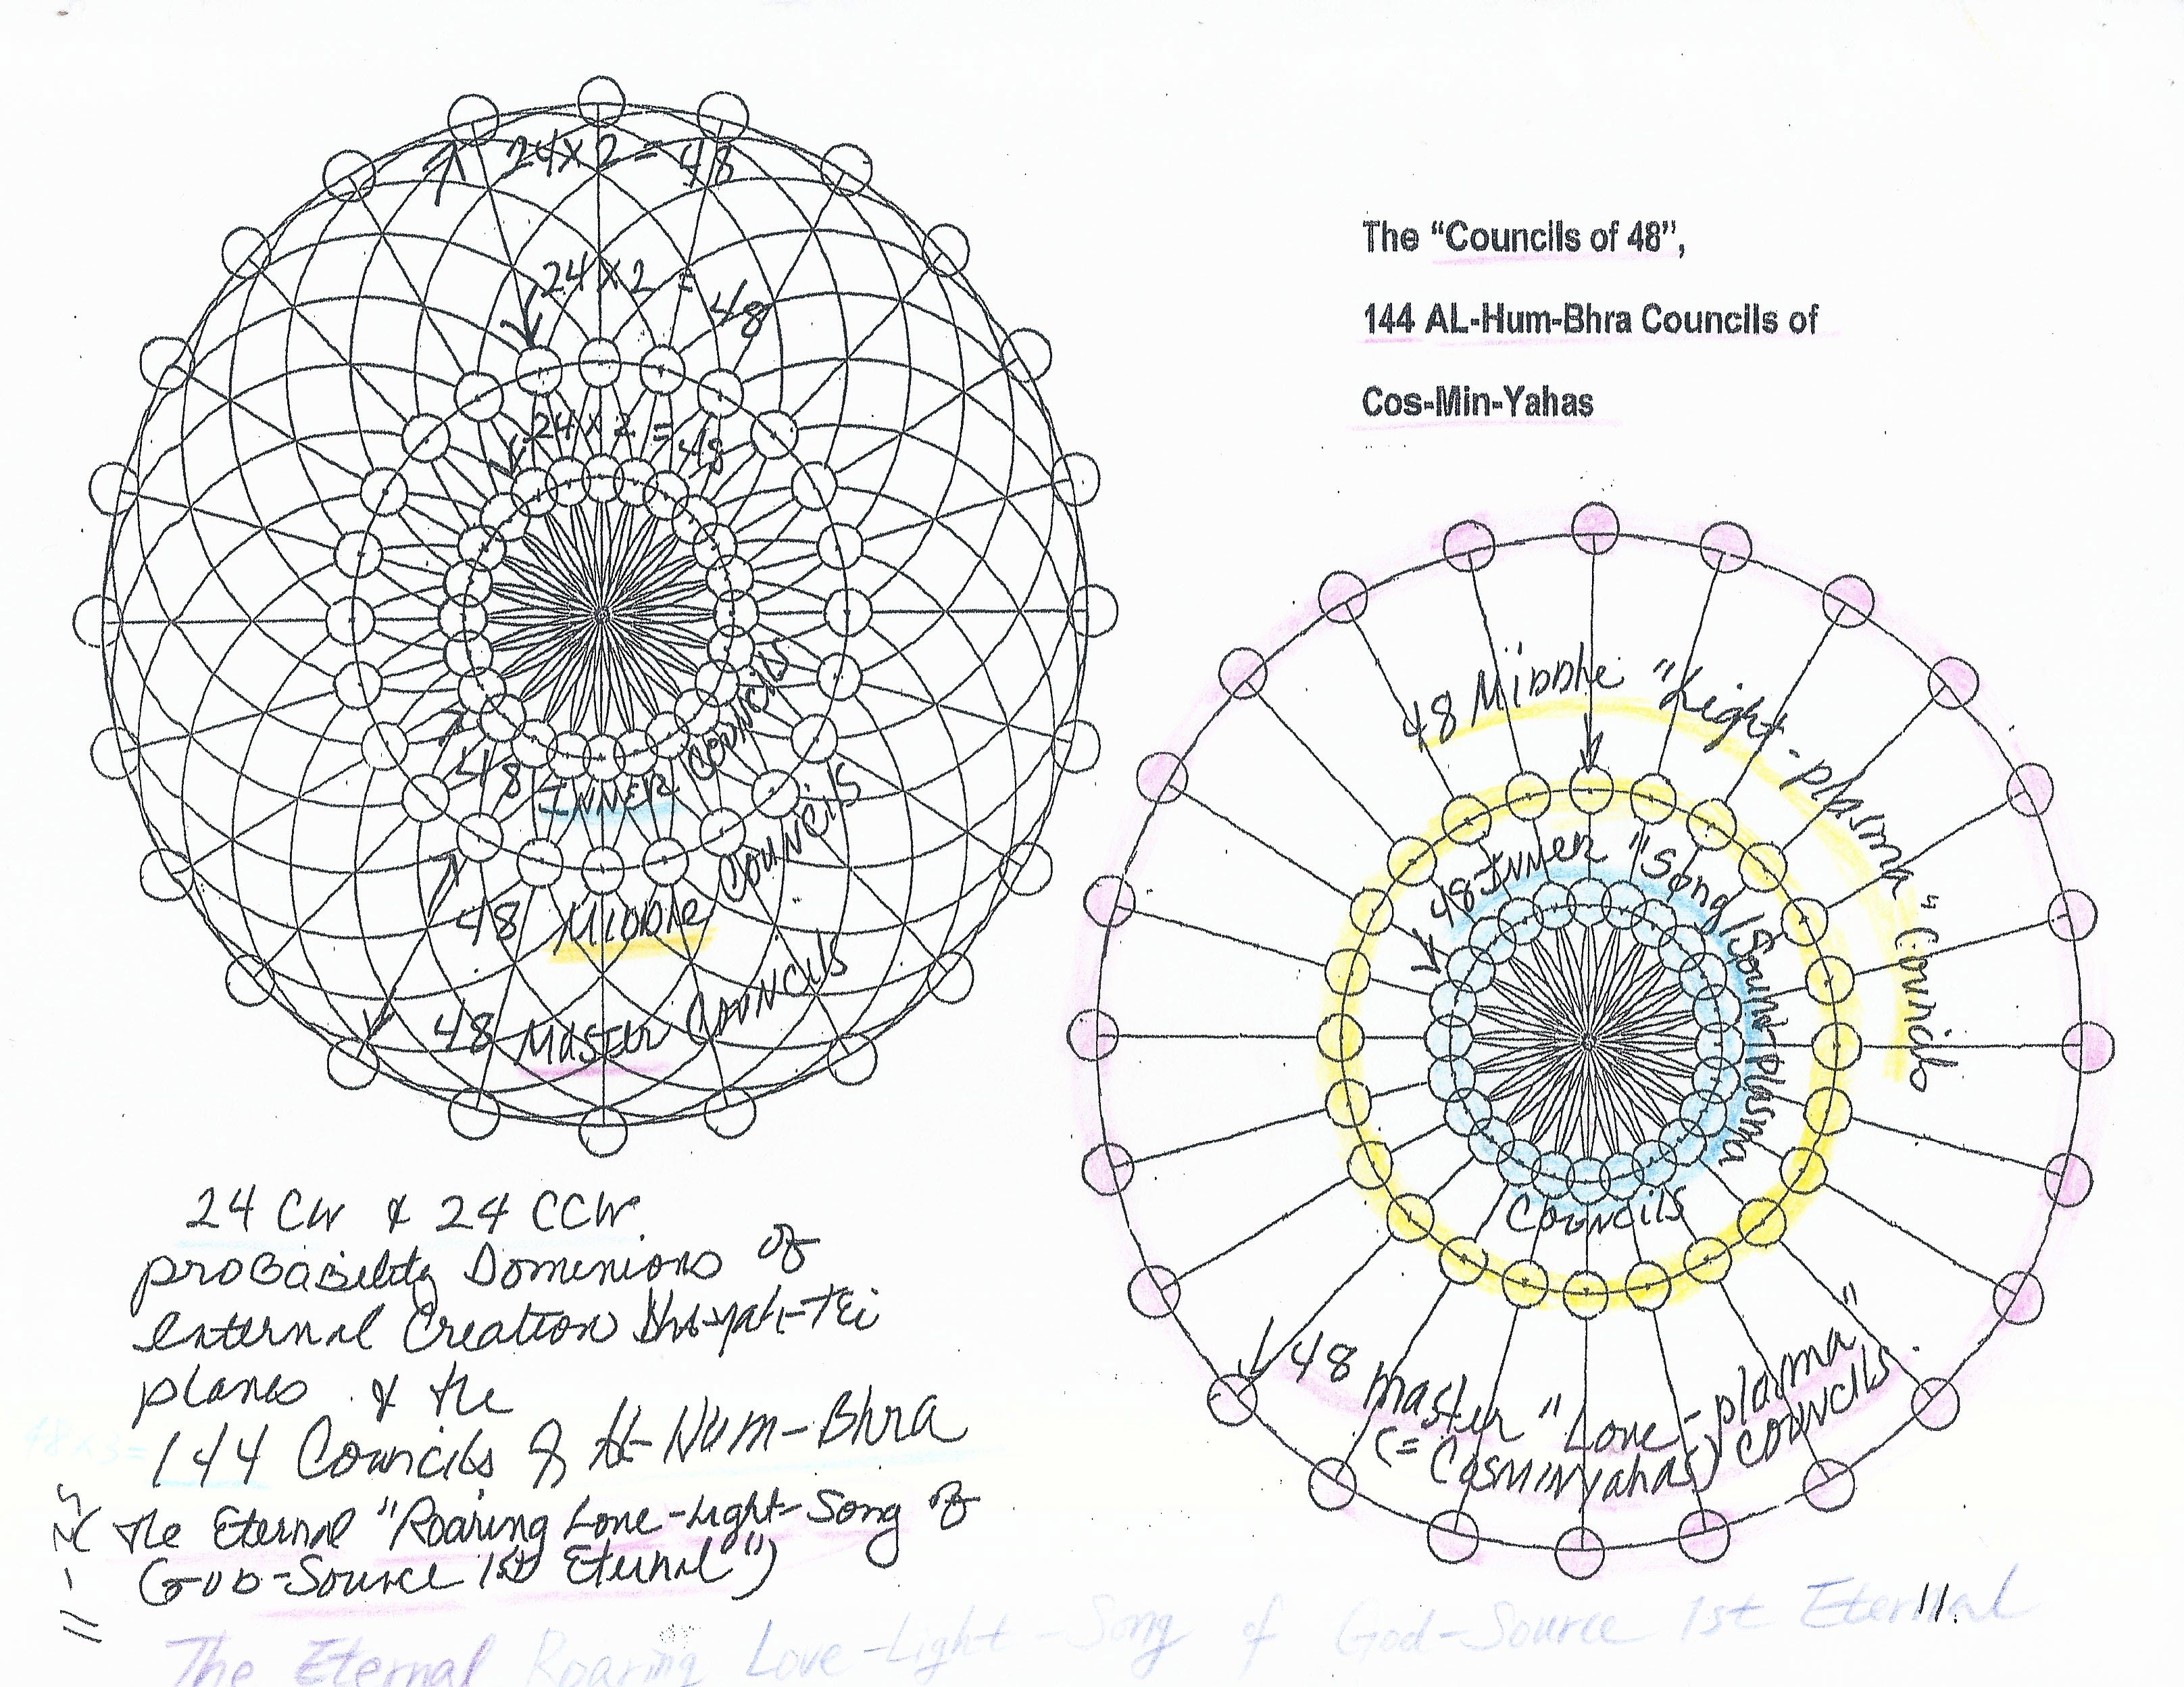 The “Councils of 48”,
144 AL-Hum-Bhra Councils of
Cos-Min-Yahas
24x2 = 48
24x2 = 48
24x2 = 48
48 INNER Councils
48 Middle Councils
48 Master Councils
48 Middle "Light-plasma" Councils
48 INNER "Song/Sound-Plasma
Councils
48 master "Love-plasma"
(=Cosminyahas) councils
24 CW & 24 CCW
probability Dominions of
external Creation
planes & the
48x3=
144 Councils of Al-Hum-Bhra
the Eternal "Roaring Love-Light-Song of
God-Source 1st Eternal")
The Eternal Roaring Love-Light-Song of God-Source 1st Eternal
11.